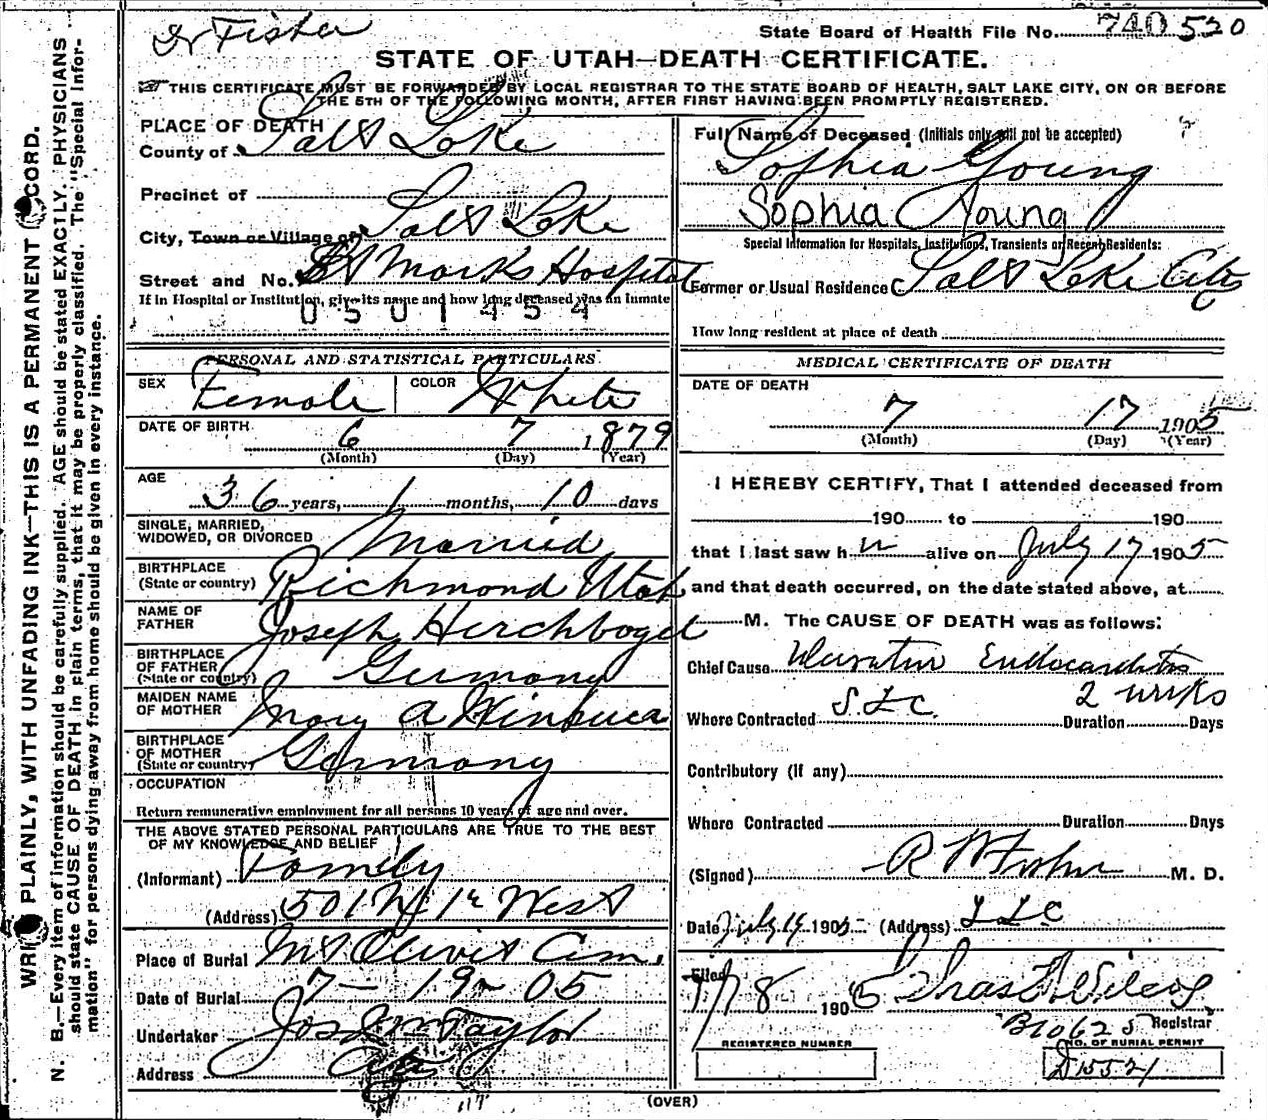 Dr Fisher
State Board of Health File No. 740 520
STATE OF UTAH—DEATH CERTIFICATE.
THIS CERTIFICATE MUST BE FORWARDED BY LOCAL REGISTRAR TO THE STATE BOARD OF HEALTH, SALT LAKE CITY, ON OR BEFORE
THE 5TH OF THE FOLLOWING MONTH, AFTER FIRST HAVING BEEN PROMPTLY REGISTERED.
WRITE PLAINLY, WITH UNFADING INK—THIS IS A PERMANENT RECORD.
N. B.—Every item of information should be carefully supplied. AGE should be stated EXACTLY. PHYSICIANS
should state CAUSE OF DEATH in plain terms, that it may be properly classified. The "Special Infor-
mation" for persons dying away from home should be given in every instance.
PLACE OF DEATH
County of Salt Lake
Precinct of
City, Town or Village of Salt Lake
Street and No. St Mark's Hospital
If in Hospital or Institution, give its name and how long deceased was an inmate
0501454
PERSONAL AND STATISTICAL PARTICULARS
SEX Female COLOR White
DATE OF BIRTH 6 7 1879
(Month) (Day) (Year)
AGE
36 years, 1 months, 10 days
SINGLE, MARRIED,
WIDOWED, OR DIVORCED Married
BIRTHPLACE
(State or country) Richmond Utah
NAME OF
FATHER Joseph
BIRTHPLACE
OF FATHER
(State or country) Germany
MAIDEN NAME
OF MOTHER Mary A
BIRTHPLACE
OF MOTHER
(State or country) Germany
OCCUPATION
Return remunerative employment for all persons 10 years of age and over.
THE ABOVE STATED PERSONAL PARTICULARS ARE TRUE TO THE BEST
OF MY KNOWLEDGE AND BELIEF
(Informant) Family
(Address) 501 N 1st West
Place of Burial Mt Olivet Cem.
Date of Burial 7 - 19 - 05
Undertaker Jos Taylor
Address
Full Name of Deceased (Initials only will not be accepted)
Sophia Young
Sophia Young
Special Information for Hospitals, Institutions, Transients or Recent Residents:
Former or Usual Residence Salt Lake City
How long resident at place of death
MEDICAL CERTIFICATE OF DEATH
DATE OF DEATH
7 17 1905
(Month) (Day) (Year)
I HEREBY CERTIFY, That I attended deceased from
190 to 190
that I last saw h er alive on July 17 1905
and that death occurred, on the date stated above, at
M. The CAUSE OF DEATH was as follows:
Chief Cause Ulcerative Endocarditis
Where Contracted S.L.C. Duration 2 weeks Days
Contributory (if any)
Where Contracted Duration Days
(Signed) R W Fisher M. D.
Date July 19 1905 (Address) S L C
Filed 7/18 1905
B10625 Registrar
REGISTERED NUMBER
NO. OF BURIAL PERMIT
D15521
(OVER)